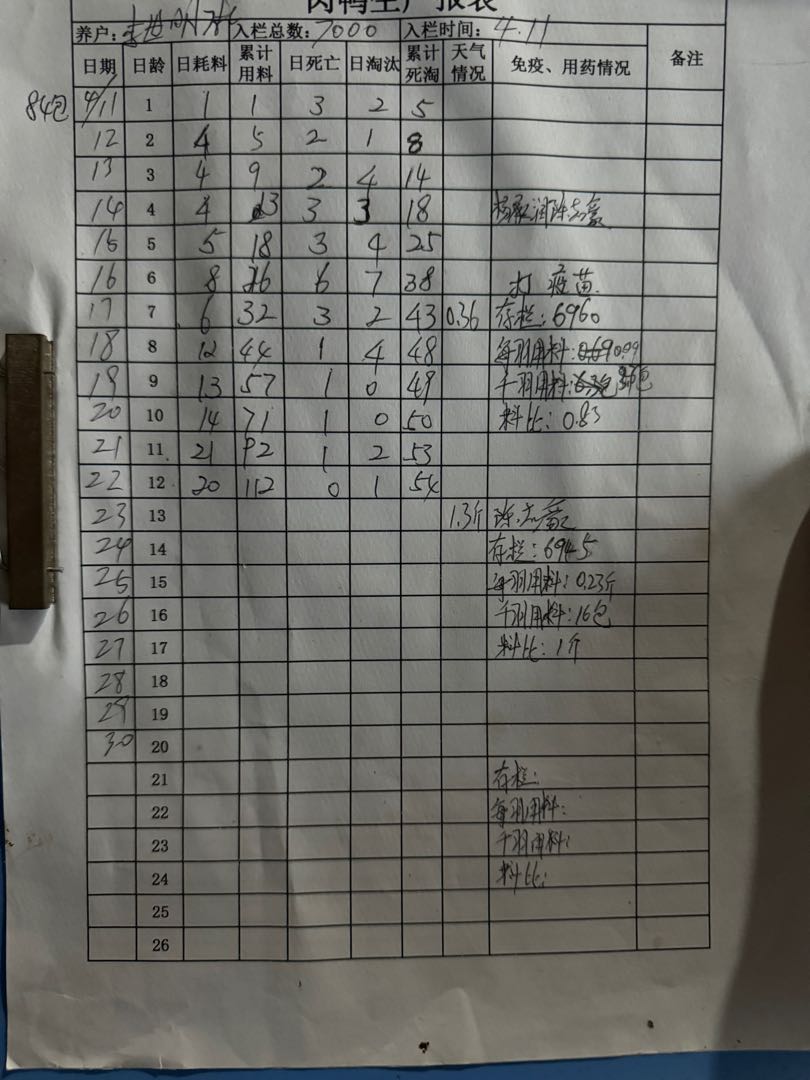 肉鸭生产报表
养户: 入栏总数:7000 入栏时间:4.11
日期 日龄 日耗料 累计用料 日死亡 日淘汰 累计死淘 天气情况 免疫、用药情况 备注
84包 4/11 1 1 1 3 2 5
12 2 4 5 2 1 8
13 3 4 9 2 4 14
14 4 4 13 3 3 18
15 5 5 18 3 4 25
16 6 8 26 6 7 38 打疫苗
17 7 6 32 3 2 43 0.36 存栏:6960
18 8 12 44 1 4 48 每羽用料: 0.09
19 9 13 57 1 0 49 千羽用料: 包
20 10 14 71 1 0 50 料比:0.83
21 11 21 92 1 2 53
22 12 20 112 0 1 54
23 13 1.3斤
24 14 存栏:6945
25 15 每羽用料:0.23斤
26 16 千羽用料:16包
27 17 料比:1斤
28 18
29 19
30 20
21 存栏:
22 每羽用料:
23 千羽用料:
24 料比:
25
26